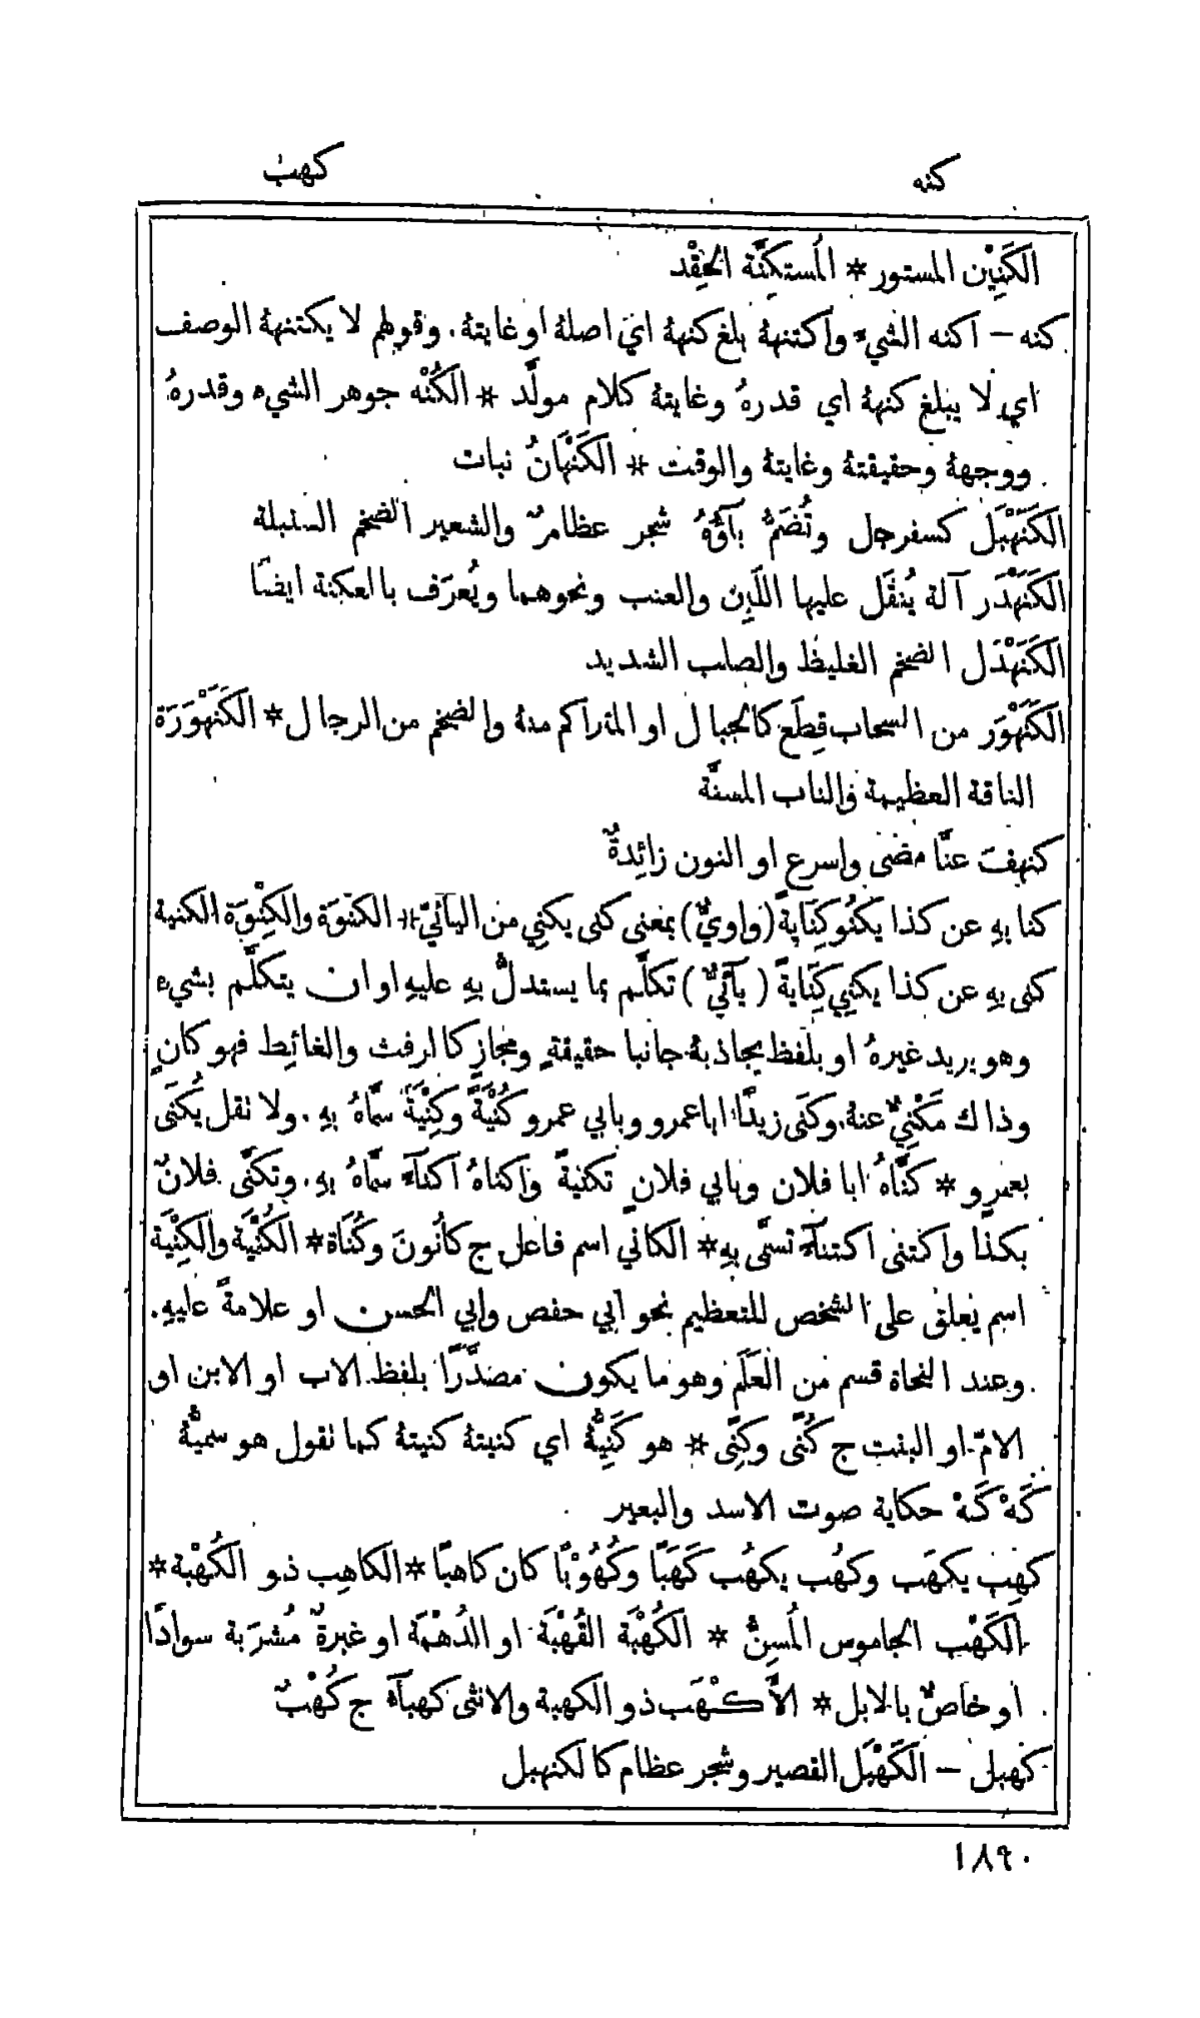 كنه
كهب
الكَنِيْن المستور * المُستكِنَّة الحِقْد
كنه – اكنه الشيء واكتنههُ بلغ كنههُ اي اصلهُ او غايتهُ. وقولهم لا يكتنههُ الوصف
اي لا يبلغ كنههُ اي قدرهُ وغايتهُ كلام مولَّد * الكُنْه جوهر الشيء وقدرهُ
ووجههُ وحقيقتهُ وغايتهُ والوقت * الكَنْهَانُ نبات
الكَنَهْبَل كسفرجل وتُضَمُّ بآؤُهُ شجر عظامٌ والشعير الضخم السنبلة
الكَنَهْدَر آلة يُنقَل عليها اللَبِن والعنب ونحوهما ويُعرَف بالعكنة ايضًا
الكَنَهْدَل الضخم الغليظ والصلب الشديد
الكَنَهْوَر من السحاب قِطَع كالجبال او المتراكم منهُ والضخم من الرجال * الكَنَهْوَرَة
الناقة العظيمة والناب المسنَّة
كنهفَ عنَّا مضى واسرع او النون زائِدةٌ
كنا بهِ عن كذا يكنُو كِنَايةً (واويٌّ) بمعنى كنى يكنِي من اليآئيّ * الكنوَة والكِنْوَة الكنية
كنى بهِ عن كذا يكنِي كِنَايةً (يآئيٌّ) تكلَّم بما يستدلُّ بهِ عليهِ او ان يتكلَّم بشيء
وهو يريد غيرهُ او بلفظ يجاذبهُ جانبا حقيقةٍ ومجازٍ كالرفث والغائِط فهو كانٍ
وذاك مَكْنِيٌّ عنهُ. وكنَى زيدًا ابا عمرو وبابي عمرو كُنْيَةً وكِنْيَةً سمَّاهُ بهِ. ولا تقل يُكنَى
بعمرو * كنَّاهُ ابا فلان وبابي فلانٍ تكنيةً واكناهُ اكنآءً سمَّاهُ بهِ. وتكنَّى فلانٌ
بكذا واكتنى اكتنآءً تسمَّى بهِ * الكاني اسم فاعل ج كانُونَ وكُنَاة * الكُنْيَة والكِنْيَة
اسم يُعلق على الشخص للتعظيم نحو ابي حفص وابي الحسن او علامةً عليهِ.
وعند النحاة قسم من العَلَم وهو ما يكون مصدَّرًا بلفظ الاب او الابن او
الامّ او البنت ج كُنًى وكِنًى * هو كَنِيُّهُ اي كنيتهُ كنيتهُ كما تقول هو سميُّهُ
كَهْ كَهْ حكاية صوت الاسد والبعير
كهِب يكهَب وكهُب يكهُب كَهَبًا وكُهُوْبًا كان كاهبًا * الكاهِب ذو الكُهْبة *
الكَهْب الجاموس المُسِنُّ * الكُهْبَة القُهْبَة او الدُهْمَة او غبرةٌ مُشرَبة سوادًا
او خاصٌّ بالابل * الأَكْهَب ذو الكهبة والانثى كهبآءُ ج كُهْبٌ
كهبل – الكَهْبَل القصير وشجر عظام كالكنهبل
١٨٩٠